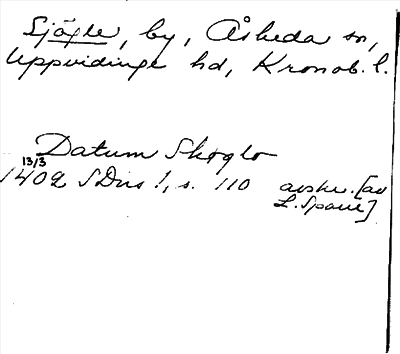 Sjögle, by, Åsheda sn,
Uppvidinge hd, Kronob. l.
Datum Skoglo
13/3
1402 SDns 1, s. 110 avskr. [av
L. Sparre]